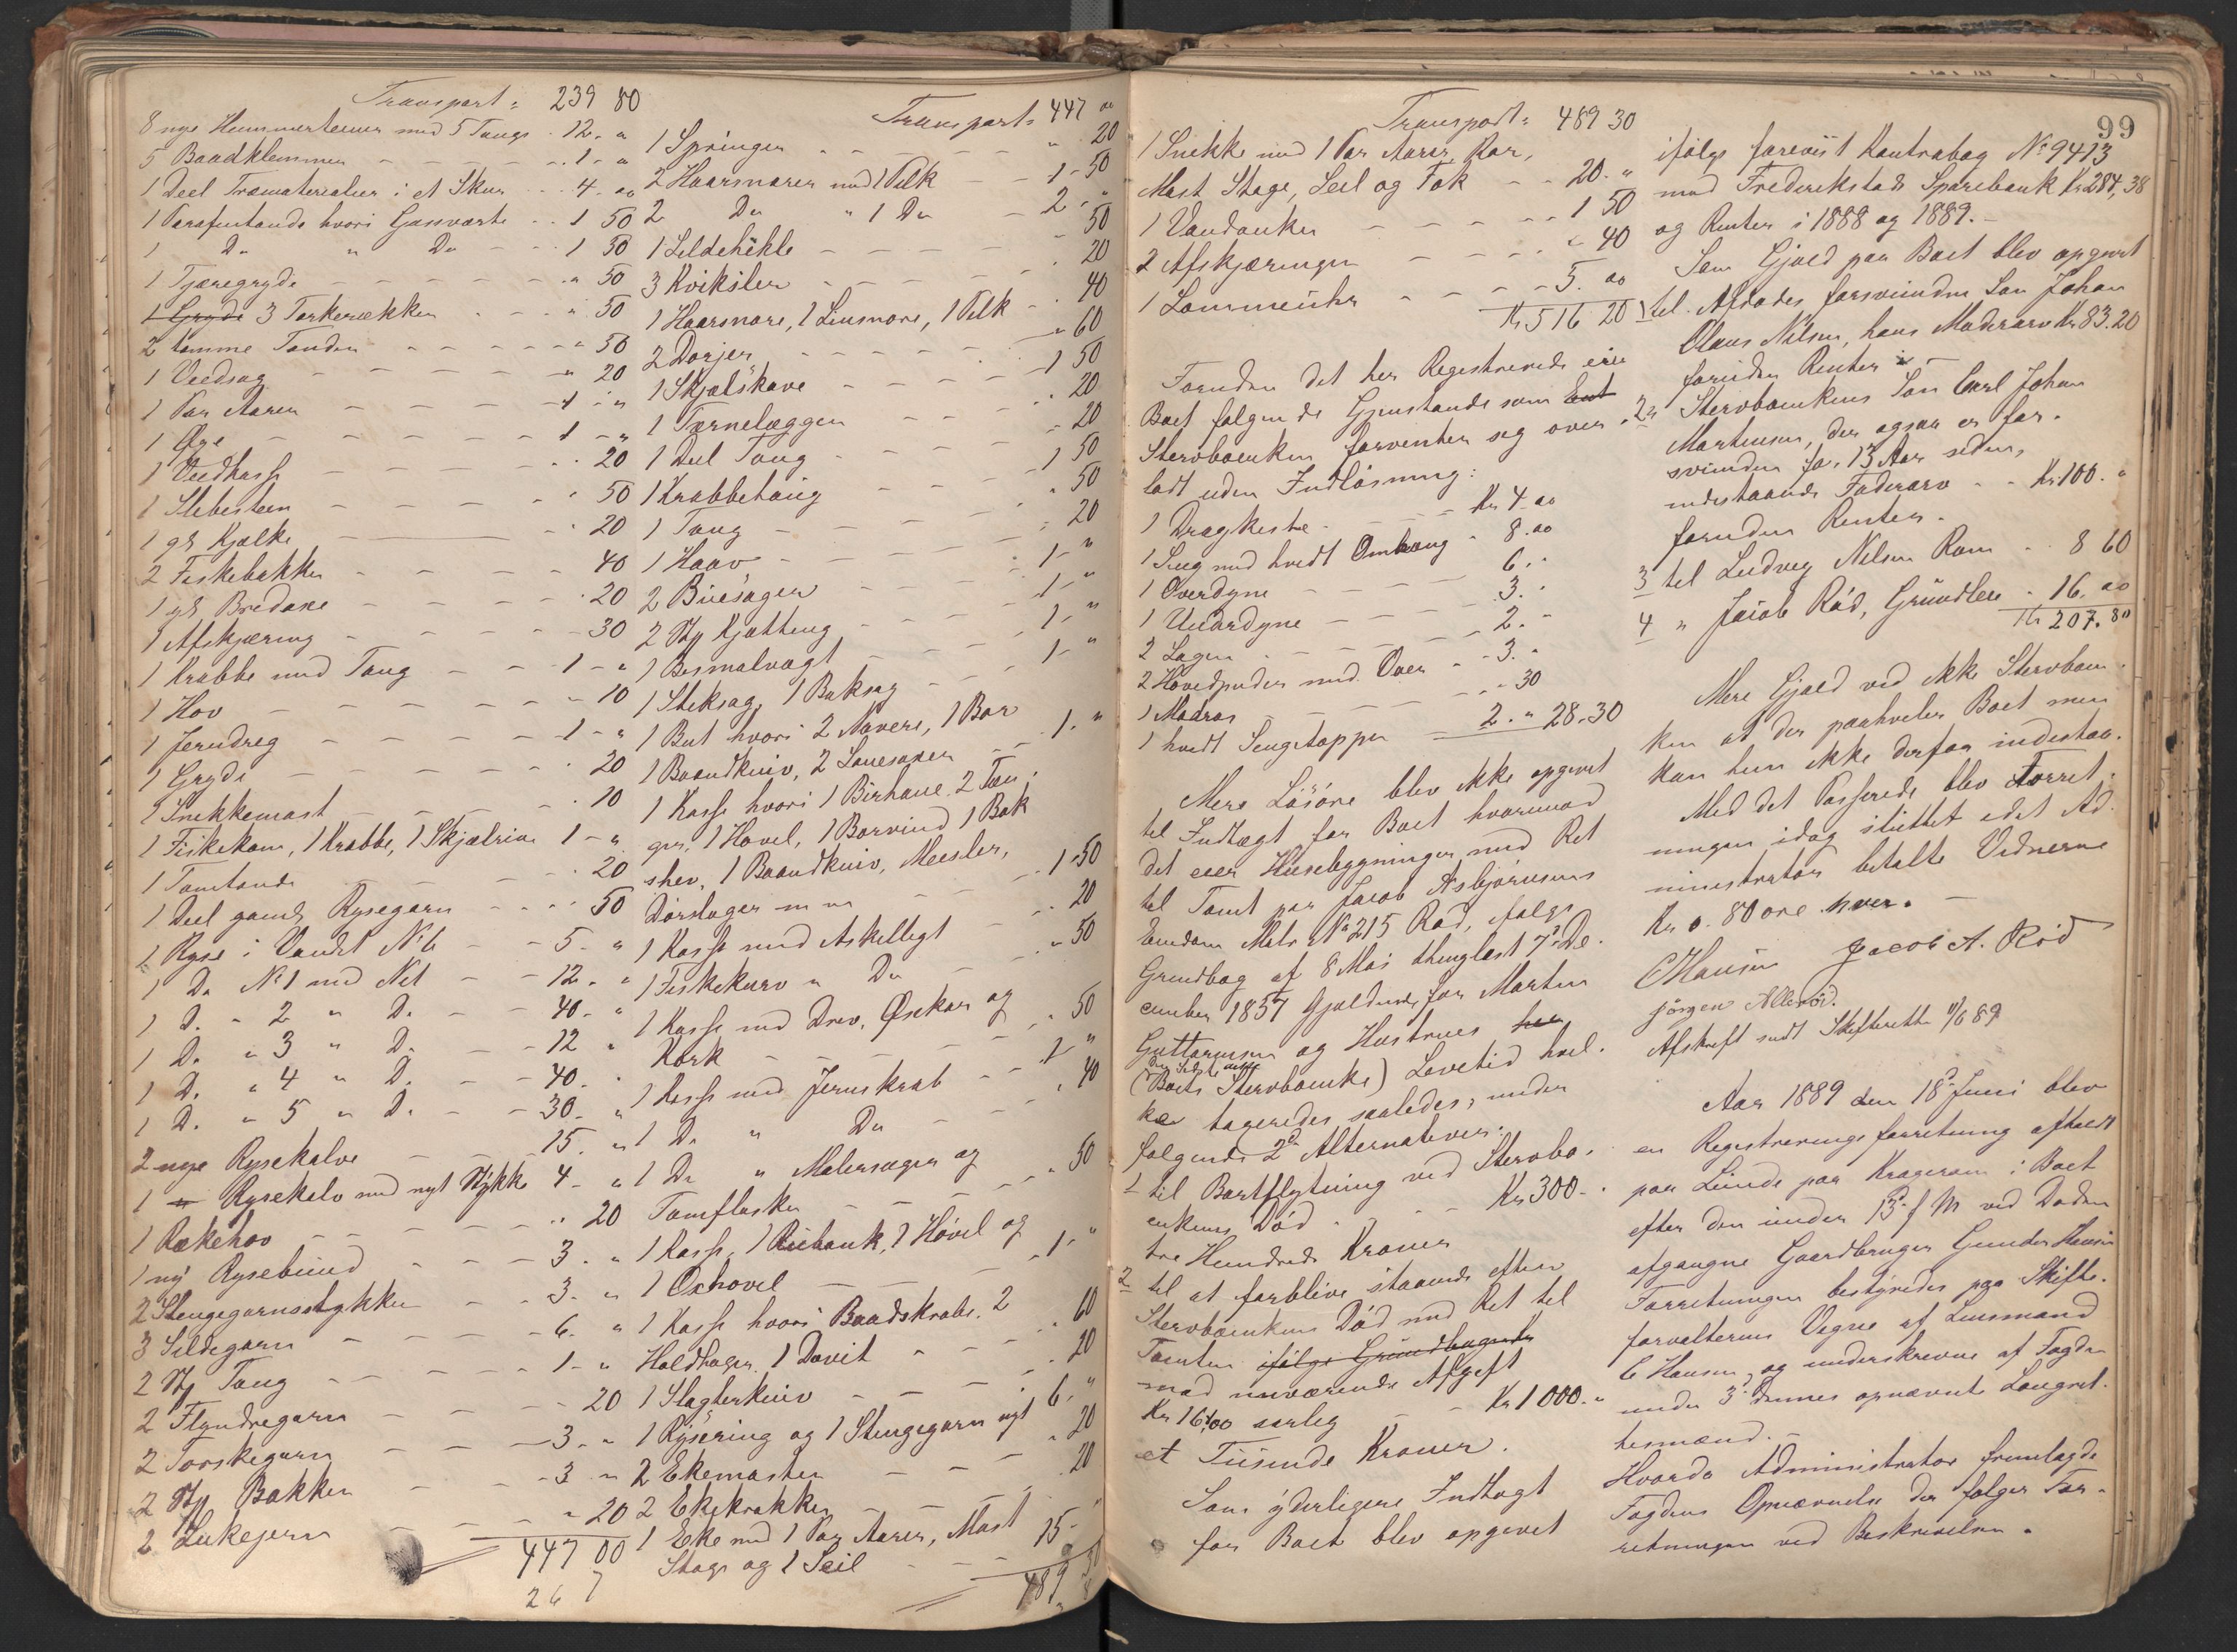 Transport: 239 80
8 nye Hummerteiner med 5 Toug - 12. "
5 Baadklemmer - 1 - "
1 Deel Træmaterialier i et Skur - 4 - 00
1 Parafintønde hvori Gasværk - 1 50
1 Do " Do - 1 50
1 Tjæregryde - " 50
1 Gryde 3 Torkerækker - " 50
2 tomme Tønder - " 30
1 Vedsag - " 20
1 Par Aarer - 1 - "
1 Øxe - 1 - "
1 Vedkasse - 20
1 Slibesteen - 50
1 gl Kjælke - 20
2 Fiskebakker - 40
1 gl Bredøxe - 20
1 Afskjæring - 30
1 Krabbe med Toug - 1 - "
1 Hov - 10
1 Jerndreg - 1 - "
1 Gryde - 20
1 Snekkemast - 10
1 Fiskekom, 1 Krabbe, 1 Skjælrive 1 - "
1 Tomtønde - 20
1 Deel gamle Rysegarn - 50
1 Ryse i Vandet No 6 - 5 - "
1 Do No 1 med Net - 12 - "
1 D. " 2 " D. - 40 - "
1 D. " 3 " D. - 12 "
1 D. " 4 " D. - 40. "
1 D. " 5 " D. - 30 - "
2 nye Rysekalve - 15. "
1 Rysekalv med nyt Stykke 4 - "
1 Rækehov - " 20
1 ny Rysebund - 3. "
2 Stengegarnsstykker - 3. "
3 Sildegarn - 6. "
2 St Toug - 1 - "
2 Flyndregarn - 20
2 Torskegarn - 3. "
2 St Bakker - 3 "
2 Lukejern - " 20
447 00
26 7
Transport: 447 00
1 Springer - " 20
2 Haarsnører med 1 Pilk - 1 - 50
2 Do " 1 Do - 2 - "
1 Sildehekle - 50
3 Kroksler - 20
1 Haarsnøre, 1 Linsnøre, 1 Pilk - 40
2 Dorjer - " 60
1 Skjølskave - 1 50
1 Tærnelægger - 20
1 Deel Toug - 20
1 Krabbetoug - 1 50
1 Toug - 50
1 Haav - 20
2 Buesager - 1 - "
2 St Kjætting - 1 - "
1 Bismalvægt - 1 - "
1 Stiksag, 1 Baksag - 1 - "
1 Bøt hvori 2 Navere, 1 Bor
1 Baandkniv, 2 Sauesaxer - 1. "
1 Kasse hvori 1 Birhane 2 Tæn-
ger, 1 Høvel, 1 Borvind 1 Bak
shev, 1 Baandkniv, Meisler,
Dørslager m m - 1 - 50
1 Kasse med Askilligt - 20
1 Fiskekurv " Do - " 50
1 Kasse med Drev, Øsekar og
Kork - " 50
1 Kasse med Jernskrab - 1 - "
1 Do " Do - " 40
1 Do " Malersager og
Tomflasker - " 50
1 Kasse, 1 Rubank, 2 Høvel og
1 Oxhøvel - 1 - "
1 Kasse hvori Baadskrabe, 2
Holdhager 1 Davit - " 60
1 Slagterkniv - 20
1 Rysering og 1 Stengegarn nyt 6. "
2 Ekemaster - " 20
2 Ekekrakker - 20
1 Eke med 1 Par Aarer, Mast
Stage og 1 Seil - 15 - "
489 30
99
Transport: 489 30
1 Snekke med 1 Par Aarer, Ror,
Mast Stage, Seil og Fok - 20. "
1 Vandanker - 1 50
2 Afskjæringer - " 40
1 Lommeuhr - 5. 00
Kr 516 20
Foruden det her Registrerede eier
Boet følgende Gjenstande som Ent
Stervboenken forventer sig over-
ladt uden Indløsning:
1 Dragkiste - Kr 4. 00
1 Seng med hvidt Omhæng - 8. 00
1 Overdyne - 6. "
1 Underdyne - 3. "
2 Lagen - 2. -
2 Hovedpuder med Over - 3. "
1 Madras - 30
1 hvidt Sengetæppe 2. " 28.30
Mere Løsøre blev ikke opgivet
til Indtægt for Boet hvorimod
det eier Husebygninger med Ret
til Tomt paa Jacob Asbjørnsens
Eiendom Matr No 215 Rød, ifølge
Grundbog af 8 Mai thinglæst 7de De-
cember 1857 gjeldende for Morten
Guttormsen og Hustrues
(Boets Stervboenke) Levetid hvil-
ke tageredes saaledes, under
følgende 2de Alternativer.
1 til Bortflytning ved Stervbo-
enkens Død - Kr 300 -
tre Hundrede Kroner
2 til at forblive staaende efter
Stervboenkens Død med Ret til
Tomten ifølge Grundbogens
mod nuværende Afgift
Kr 16,00 aarlig - Kr 1000. "
et Tusinde Kroner.
Som yderligere Indtægt
for Boet blev opgivet
ifølge foreviist Kontrabog No 9413
med Frederikstads Sparebank Kr 284,38
og Renter i 1888 og 1889. -
Som Gjæld paa Boet blev opgivet
1 til Afdødes forsvundne Søn Johan
Olaus Nilsen, hans Mødrearv Kr 83.20
foruden Renter
2 " Stervboenkens Søn Carl Johan
Martinsen, der ogsaa er for-
svunden for 13 Aar siden,
indestaaende Faderarv - Kr 100. "
foruden Renter.
3 til Ludvig Nilsen Røm - 8 60
4 " Jacob Rød, Grundleie - 16. 00
Kr 207. 80
Mere Gjæld ved ikke Stervboen-
ken at der paahviler Boet men
kan hun ikke derfor indestaa.
Med det Passerede blev Forret-
ningen idag sluttet idet Ad-
ministrator betalte Vidnerne
Kr 0. 80 øre hver. -
C Hansen Jacob A. Rød
Jörgen Allerød.
Afskrift sendt Skifteretten 11/6 89
Aar 1889 den 18de Juni blev
en Registreringsforretning afholdt
paa Lunde paa Kragerøen i Boet
efter den under 13de f M ved Døden
afgangne Gaardbruger Gunder Hansen
Forretningen bestyredes paa Skifte-
forvalterens Vegne af Lensmand
C Hansen, og underskrevne af Fogden
under 3de dennes opnævnte Laugret-
tesmænd. -
Hvorda Administrator fremlagde
Fogdens Opnævnelse der følger For-
retningen ved Beskrivelsen.